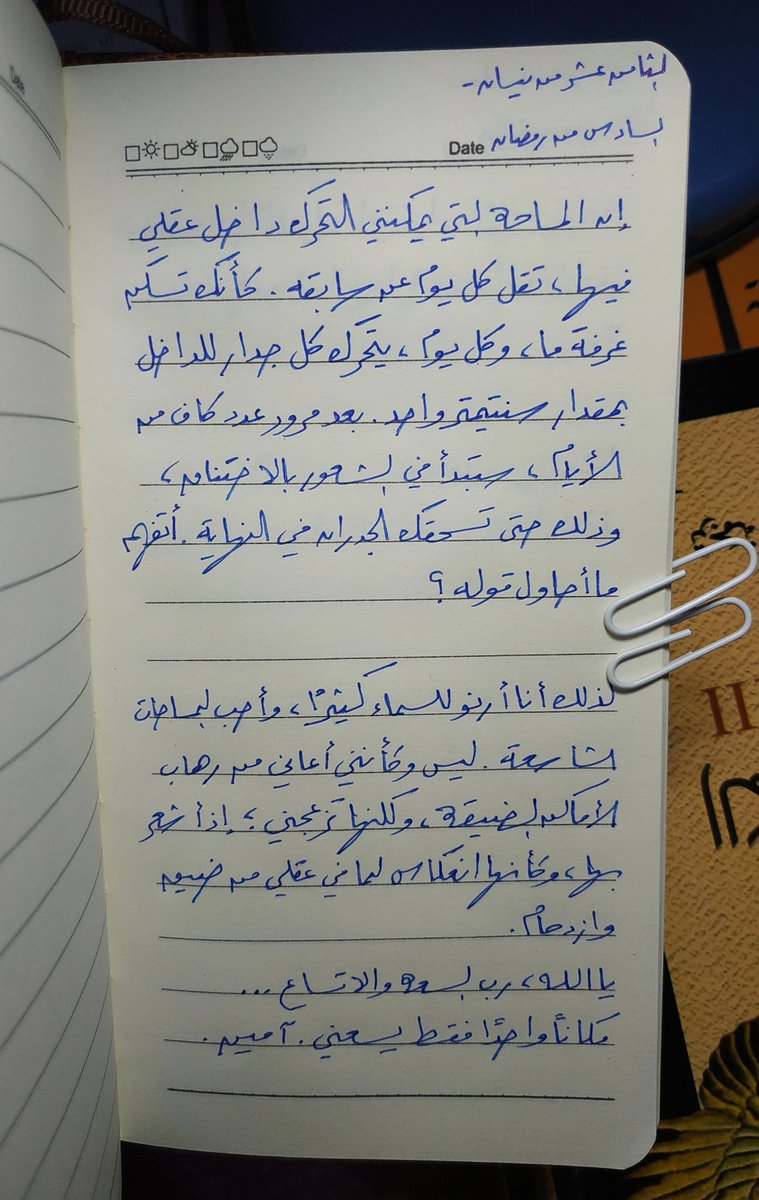 الثامن عشر من نيسان -
السادس من رمضان
Date
إن المساحة التي يمكنني التحرك داخل عقلي
فيها، تقل كل يوم عن سابقه. كأنك تسكن
غرفة ما، وكل يوم، يتحرك كل جدار للداخل
بمقدار سنتيمتر واحد. بعد مرور عدد كاف من
الأيام، ستبدأ في الشعور بالاختناق،
وذلك حتى تسحقك الجدران في النهاية. أتفهم
ما أحاول قوله؟
لذلك أنا أرنو للسماء كثيرًا، وأحب المساحات
الشاسعة. ليس وكأنني أعاني من رهاب
الأماكن الضيقة، ولكنها تزعجني؛ إذ أشعر
بها، وكأنها انعكاس لما في عقلي من ضيق
وازدحام.
يا الله، رب السعة والاتساع ...
مكانًا واحدًا فقط يسعني. آمين.
Date
II